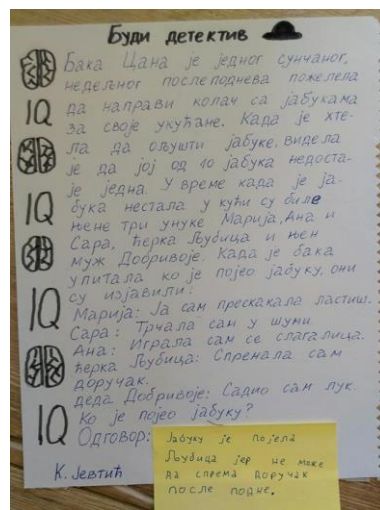 Буди детектив
Бака Цана је једног сунчаног,
недељног послеподнева пожелела
IQ
да направи колач са јабукама
за своје укућане. Када је хте-
ла да ољушти јабуке, видела
је да јој од 10 јабука недоста-
IQ
је једна. У време када је ја-
бука нестала у кући су биле
њене три унуке Марија, Ана и
Сара, ћерка Љубица и њен
муж Добривоје. Када је бака
упитала ко је појео јабуку, они
су изјавили:
IQ
Марија: Ја сам прескакала ластиш.
Сара: Трчала сам у шуми.
Ана: Играла сам се слагалица.
ћерка Љубица: Спремала сам
доручак.
деда Добривоје: Садио сам лук.
IQ
Ко је појео јабуку?
Одговор:
Јабуку је појела
Љубица јер не може
да спрема доручак
после подне.
К. Јевтић